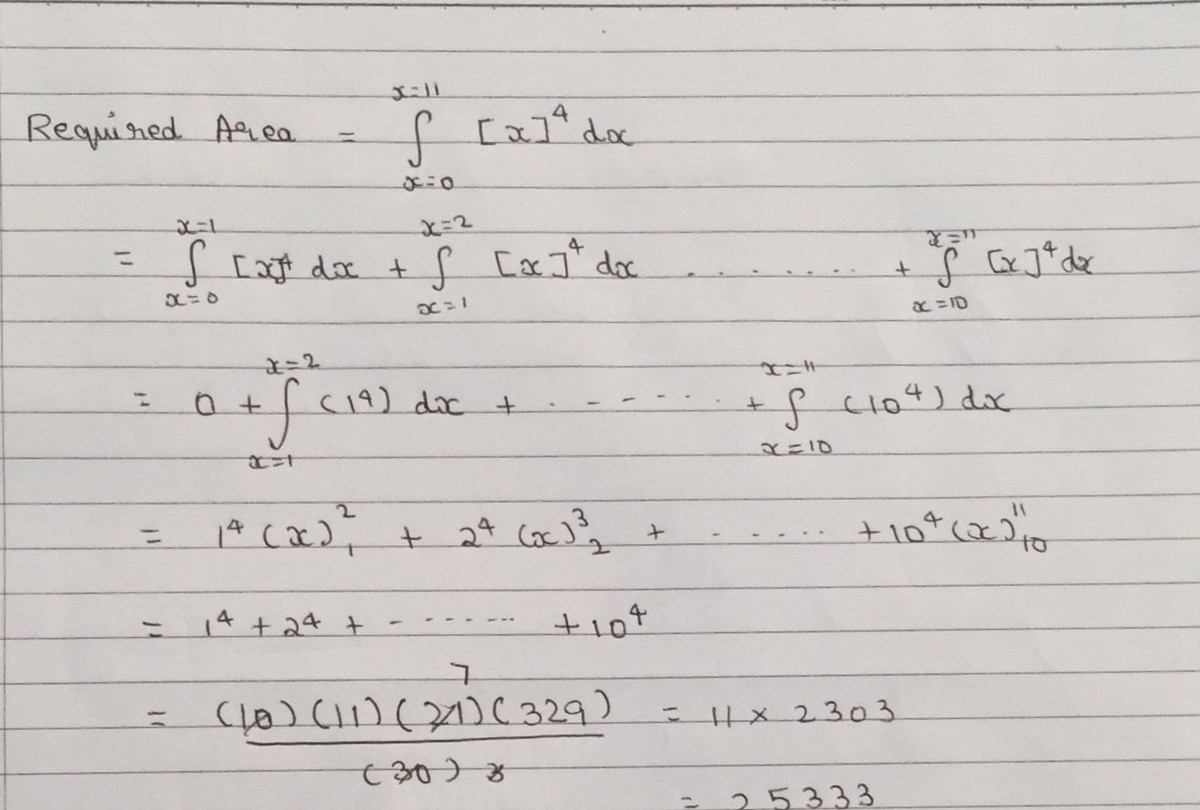 Required Area = ∫_{x=0}^{x=11} [x]^4 dx
= ∫_{x=0}^{x=1} [x]^4 dx + ∫_{x=1}^{x=2} [x]^4 dx ........ + ∫_{x=10}^{x=11} [x]^4 dx
= 0 + ∫_{x=1}^{x=2} (1^4) dx + ....... + ∫_{x=10}^{x=11} (10^4) dx
= 1^4 (x)_1^2 + 2^4 (x)_2^3 + ...... + 10^4 (x)_{10}^{11}
= 1^4 + 2^4 + ....... + 10^4
7
= (10)(11)(21)(329) = 11 × 2303
(30) 3
= 25333